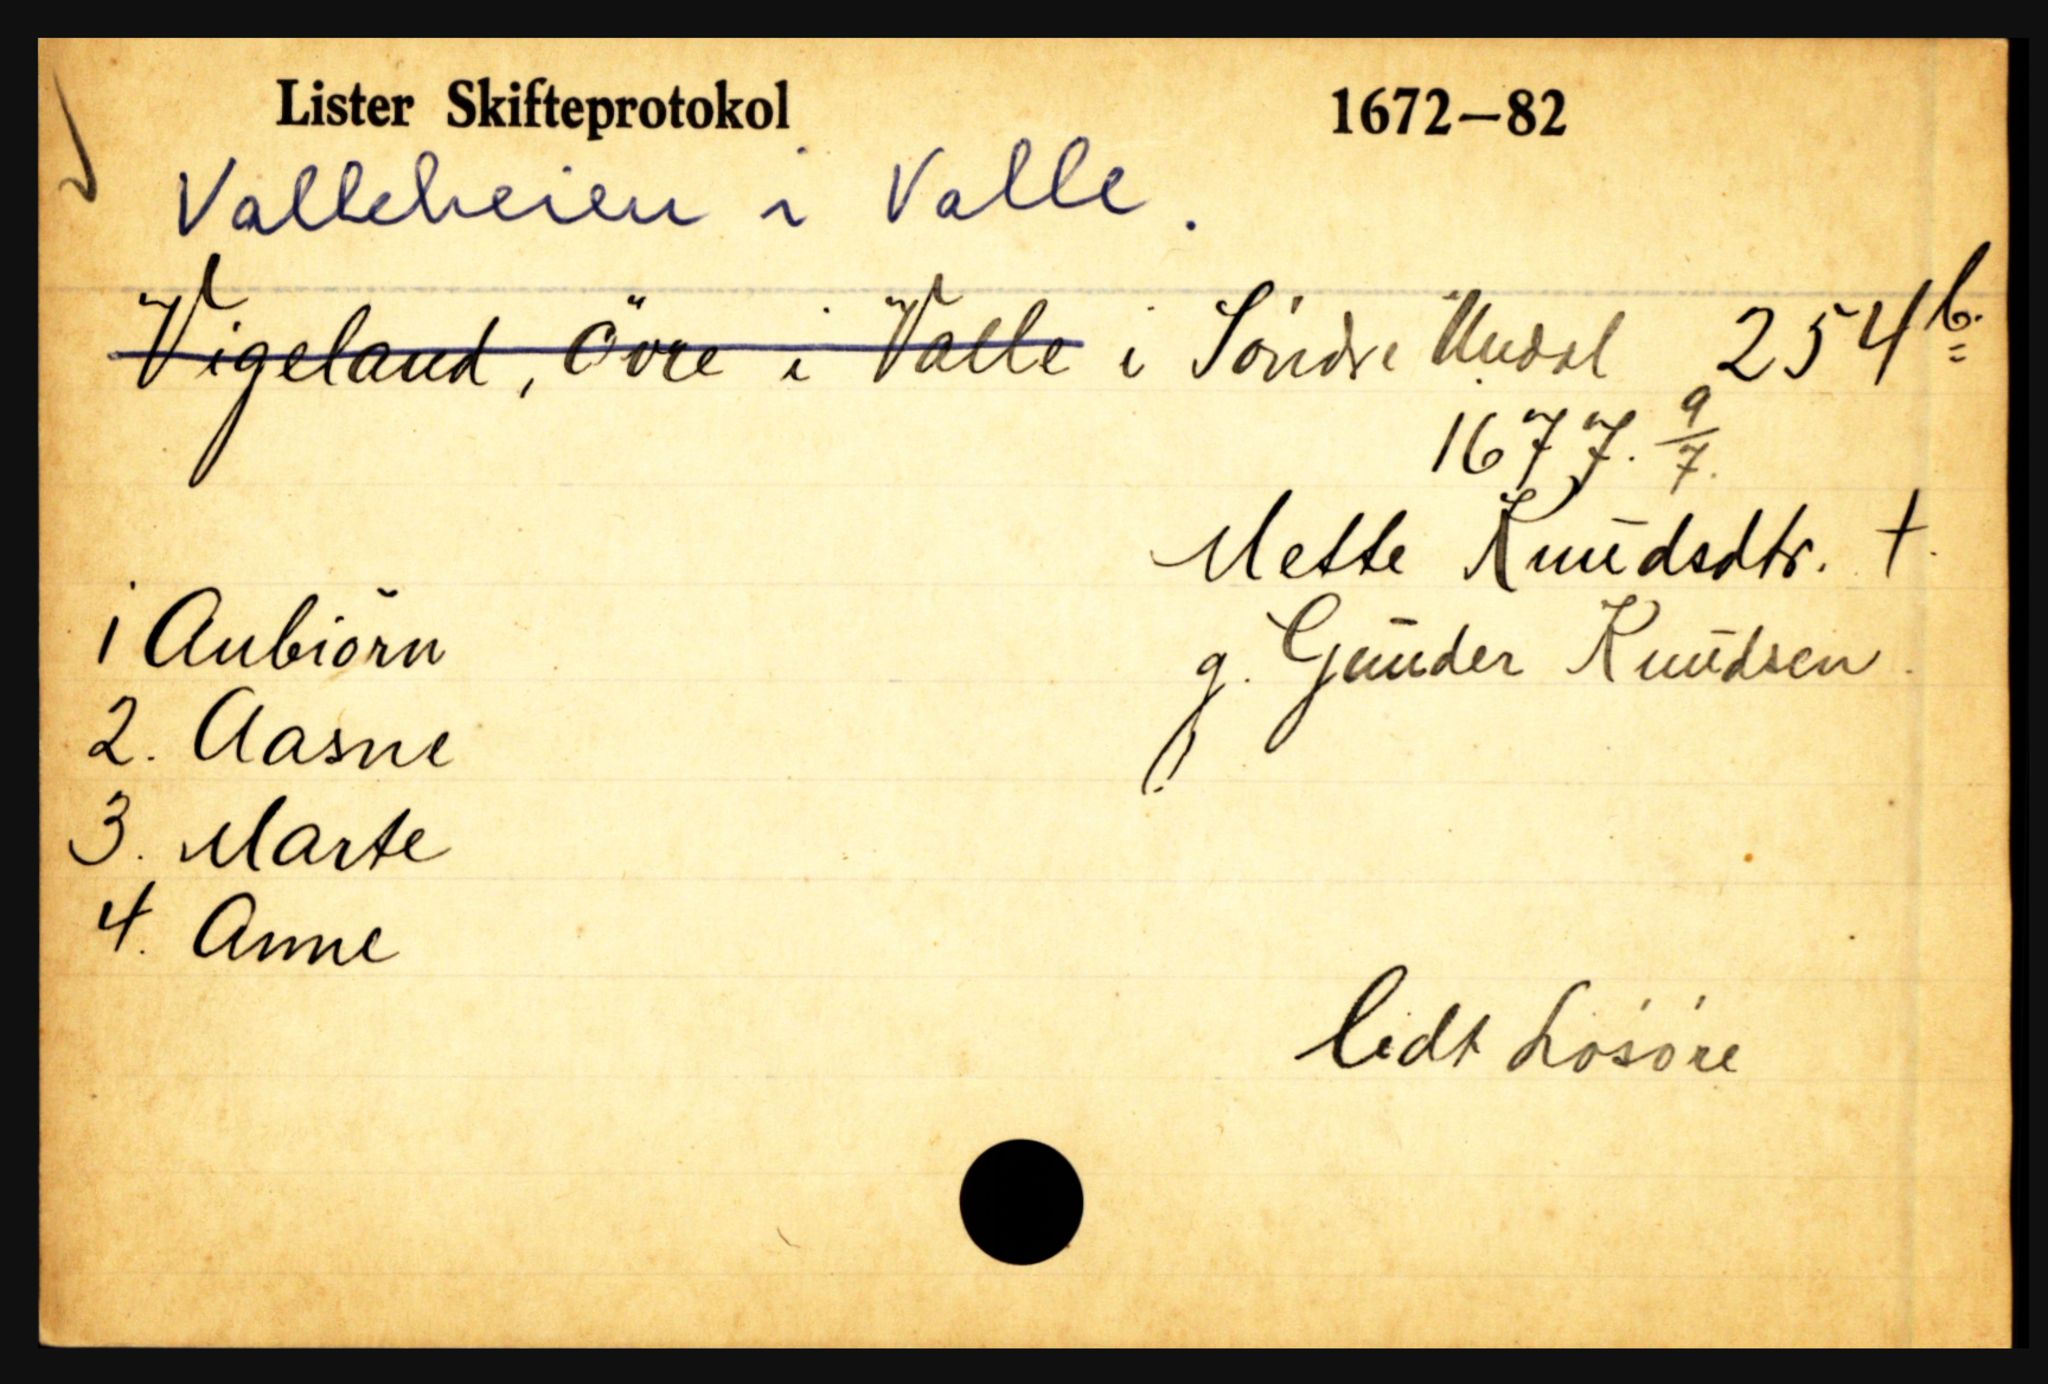 Lister Skifteprotokol 1672–82
Valleheien i Valle.
Vigeland, Övre i Valle i Söndre Undal 254 b.
1677. 9/7.
Mette Knudsdtr. †.
1 Anbiörn
g. Gunder Knudsen.
2. Aasne
3. Marte
4. Anne
lidt Lösöre